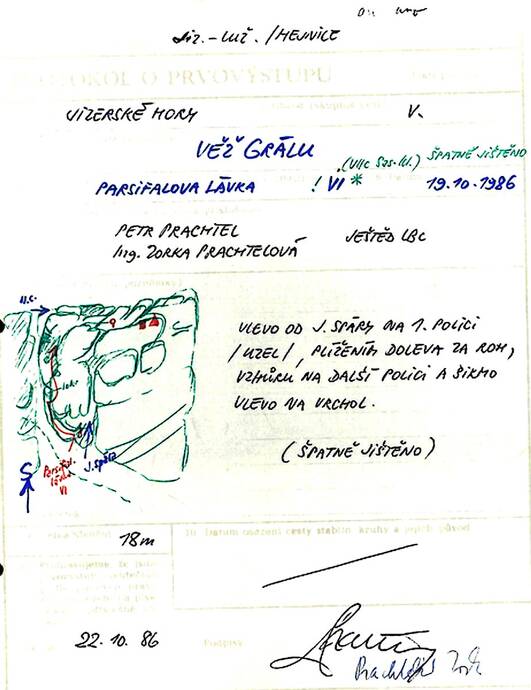 JIZ.-LUŽ. /HEJNICE
PROTOKOL O PRVOVÝSTUPU
JIZERSKÉ HORY V.
VĚŽ GRÁLU
(VIIc Sas. kl.) ŠPATNĚ JIŠTĚNO
PARSIFALOVA LÁVKA ! VI * 19.10.1986
PETR PRACHTEL JEŠTĚD LBC
Ing. ZORKA PRACHTELOVÁ
VLEVO OD J. SPÁRY NA 1. POLICI
/UZEL/, PLÍŽENÍM DOLEVA ZA ROH,
VZHŮRU NA DALŠÍ POLICI A ŠIKMO
VLEVO NA VRCHOL.
(ŠPATNĚ JIŠTĚNO)
J. spára
Parsif.
lávka
VI
S
18m
10. Datum osazení cesty stabiln. kruhy a jejich původ
22.10.86 Podpisy